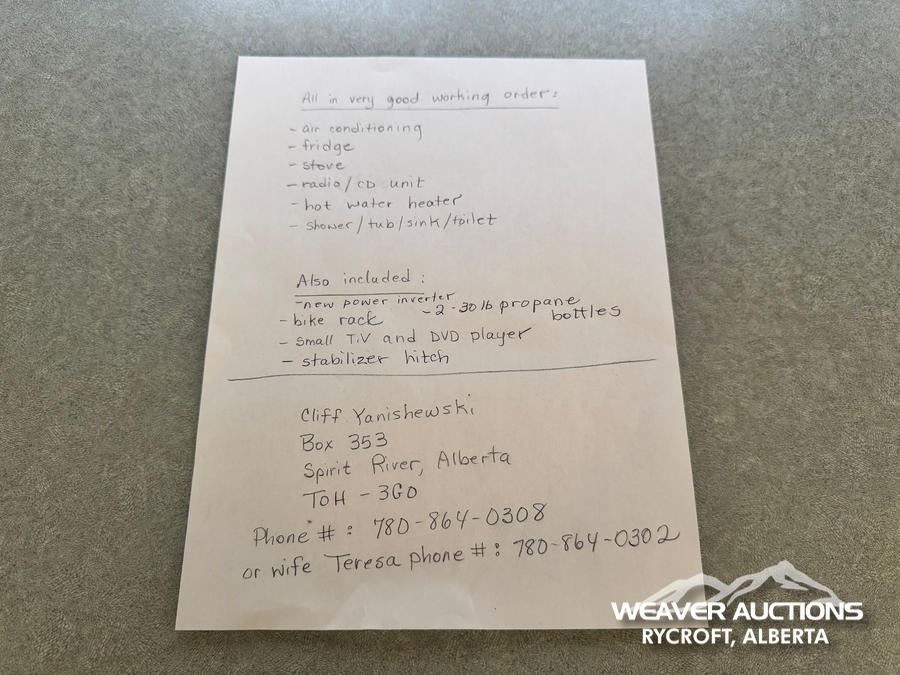 All in very good working order:
- air conditioning
- fridge
- stove
- radio/CD unit
- hot water heater
- shower/tub/sink/toilet
Also included:
- new power inverter
- 2 - 30 lb propane bottles
- bike rack
- small T.V and DVD player
- stabilizer hitch
Cliff Yanishewski
Box 353
Spirit River, Alberta
T0H - 3G0
Phone #: 780-864-0308
or wife Teresa phone #: 780-864-0302
WEAVER AUCTIONS
RYCROFT, ALBERTA